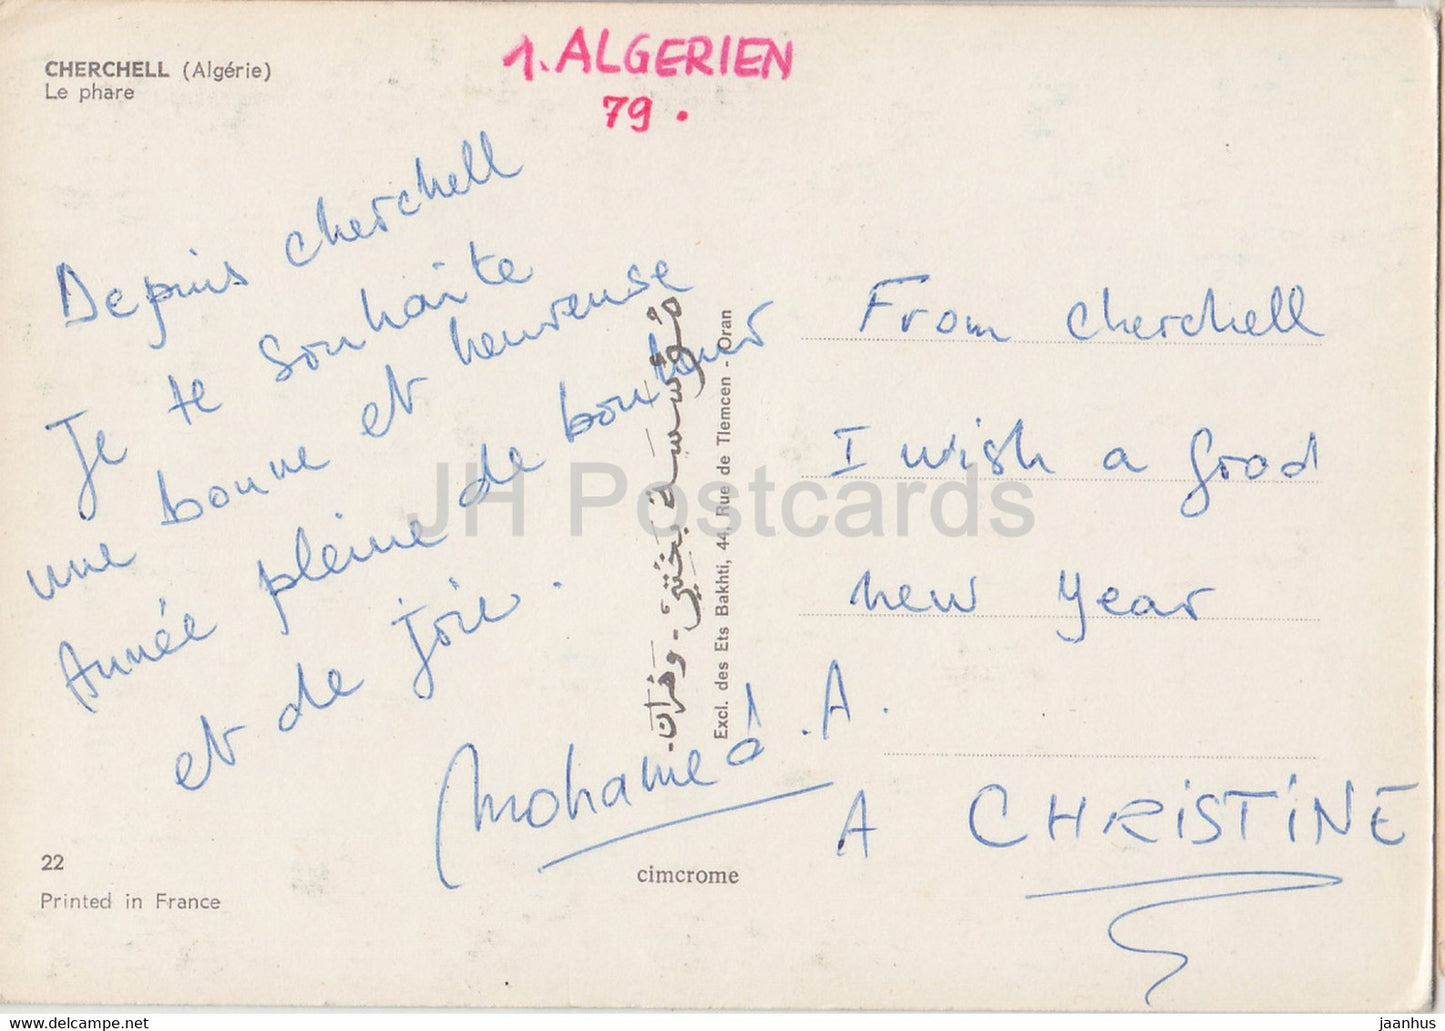 CHERCHELL (Algérie)
Le phare
1. ALGERIEN
79.
Depuis cherchell
Je te souhaite
une bonne et heureuse
Année pleine de bonheur
et de joie.
Mohamed .A.
مؤسسة بختي - وهران -
Excl. des Ets Bakhti, 44, Rue de Tlemcen - Oran
From cherchell
I wish a good
new year
A CHRiSTiNE
22
Printed in France
cimcrome
JH Postcards
hip-postcard.com/store/jaanhus
jaanhus